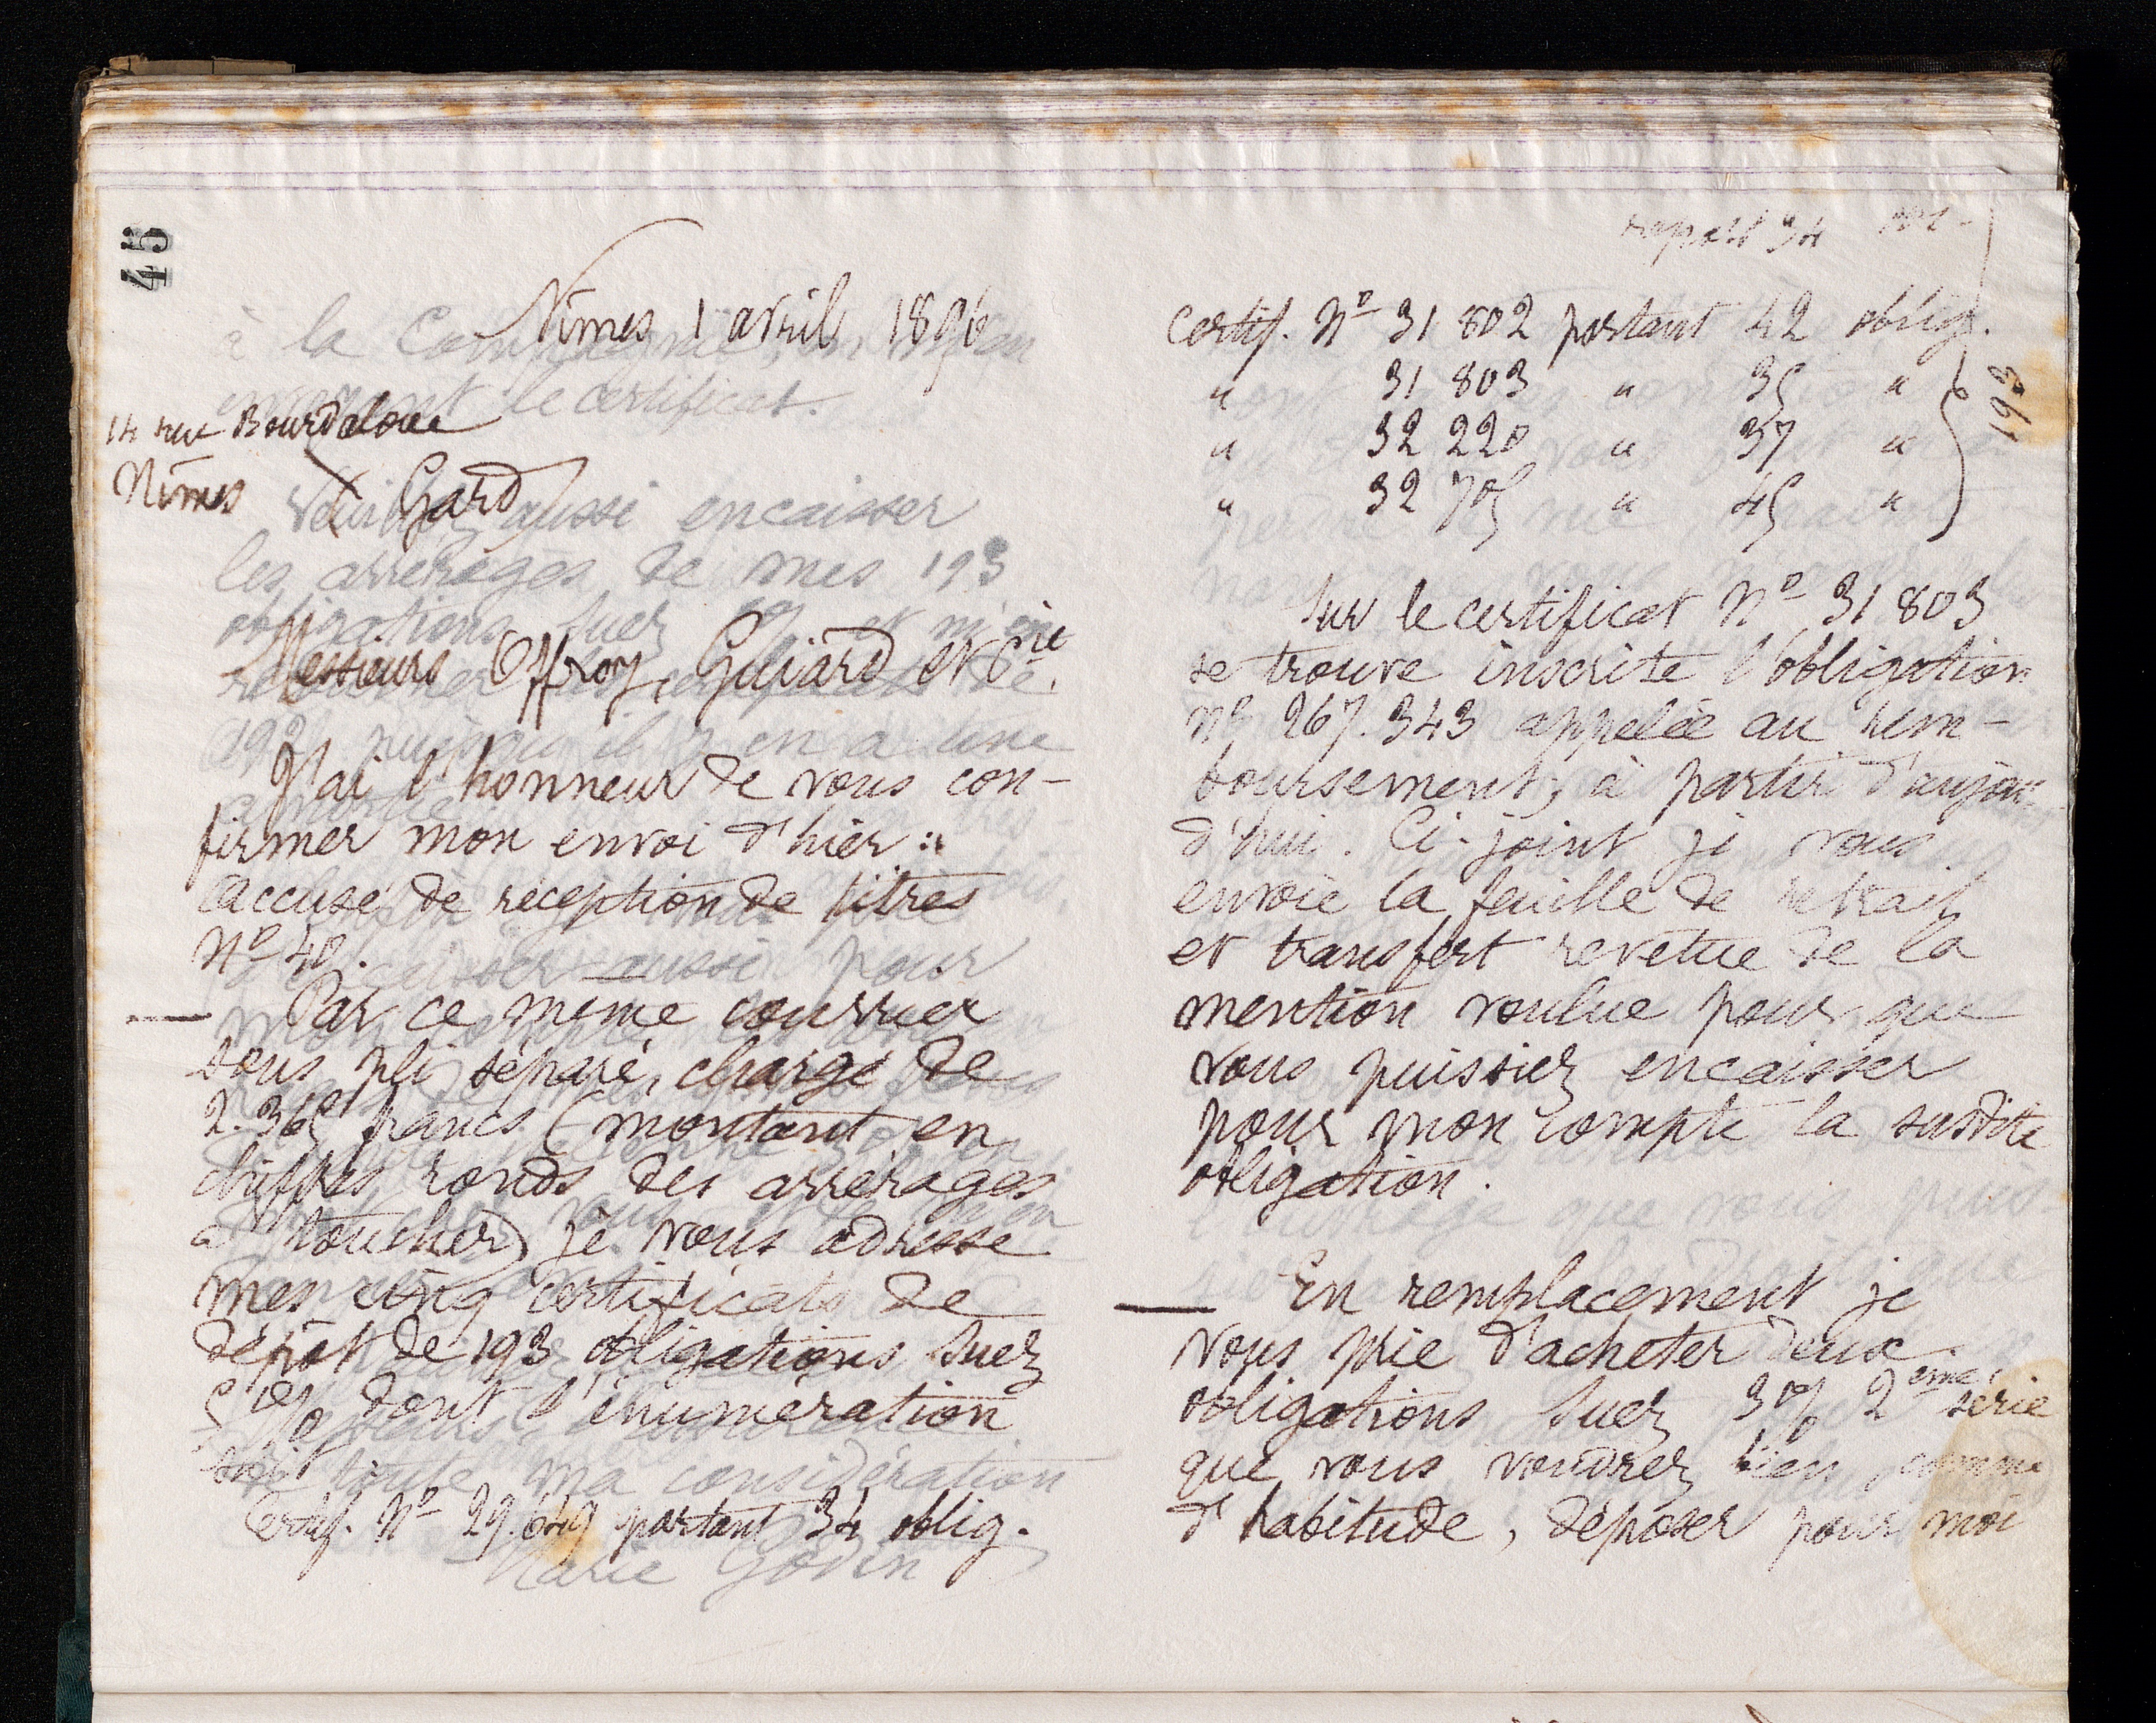 45
Nîmes 1 avril 1896
14 rue Bourdaloue
Nîmes Gard
Messieurs Offroy, Guiard et Cie.
J'ai l'honneur de vous con-
firmer mon envoi d'hier :
accusé de réception de titres
No 40.
— Par ce même courrier
sous pli séparé, chargé de
2.365 francs (montant en
chiffres ronds des arrérages
à toucher) je vous adresse
mes cinq certificats de
dépôt de 193 obligations Suez
5% dont l'énumération
suit :
Certif. No 29.649 portant 34 oblig.
report 34
certif. No 31 802 portant 42 oblig.
" 31 803 " 35 "
" 32 220 " 37 "
" 32 705 " 45 "
193
Sur le certificat No 31 803
se trouve inscrite l'obligation
no 267.343 appelée au rem-
boursement, à partir d'aujour-
d'hui. Ci-joint je vous
envoie la feuille de retrait
et transfert revêtue de la
mention voulue pour que
vous puissiez encaisser
pour mon compte la susdite
obligation.
— En remplacement je
vous prie d'acheter deux
obligations Suez 3% 2ème série
que vous voudrez bien, comme
d'habitude, déposer pour moi